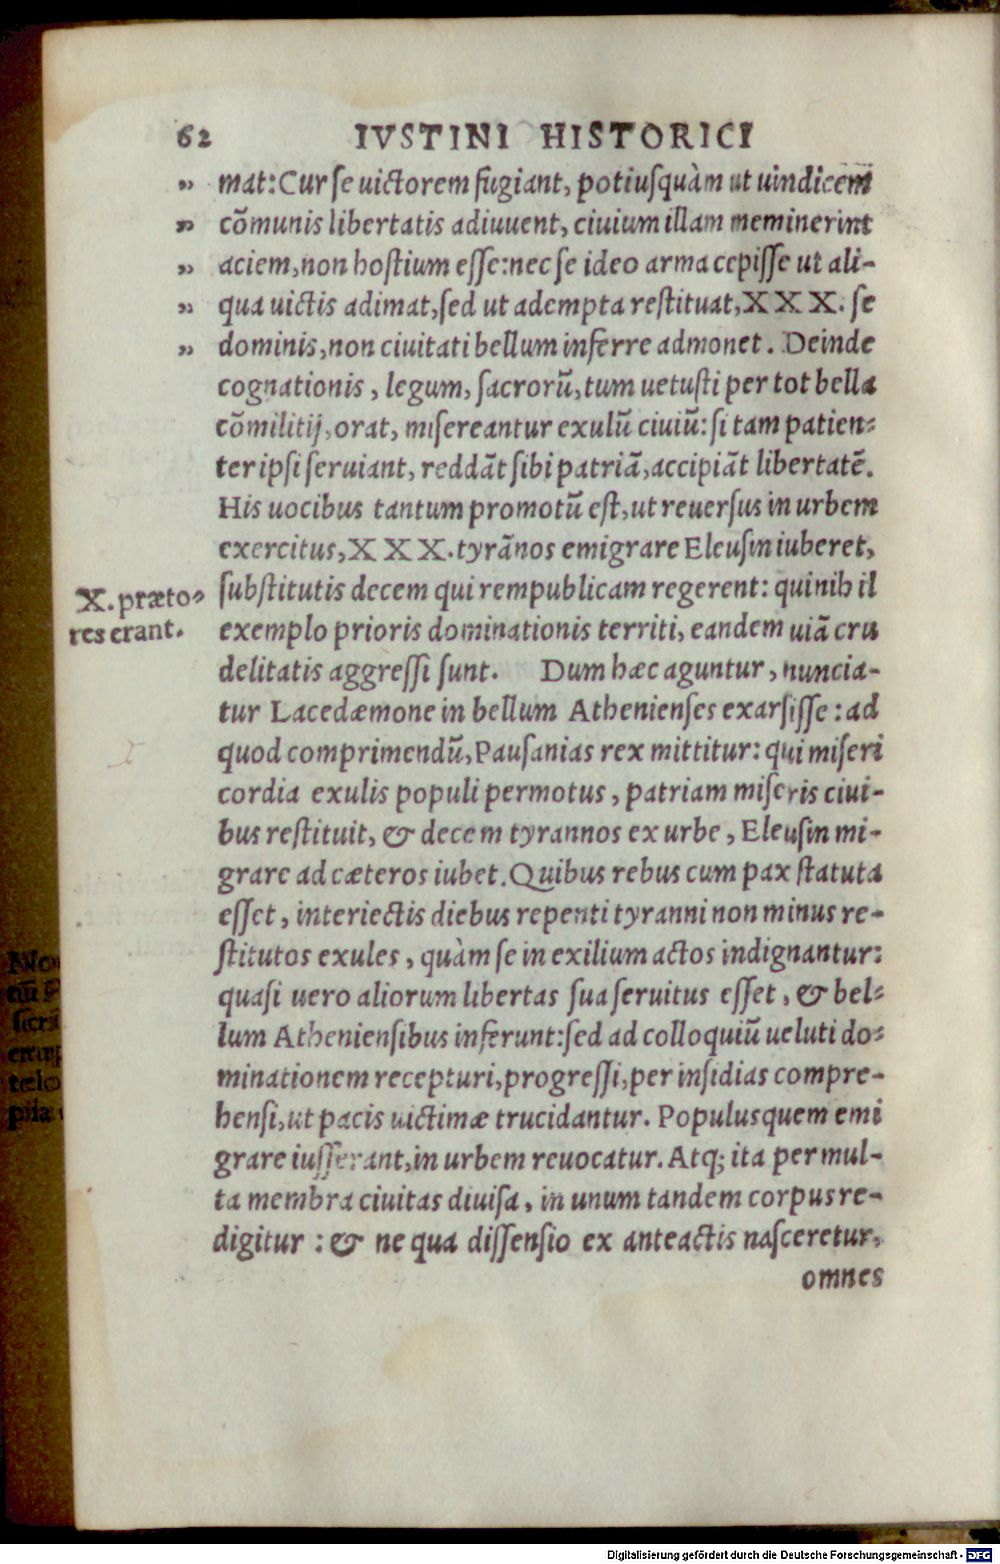 62 IVSTINI HISTORICI
„ mat: Cur se uictorem fugiant, potiusquàm ut uindicem
„ cõmunis libertatis adiuuent, ciuium illam meminerint
„ aciem, non hostium esse: nec se ideo arma cepisse ut ali-
„ qua uictis adimat, sed ut adempta restituat, XXX. se
„ dominis, non ciuitati bellum inferre admonet. Deinde
cognationis, legum, sacrorũ, tum uetusti per tot bella
cõmilitij, orat, misereantur exulũ ciuiũ: si tam patien-
ter ipsi seruiant, reddãt sibi patriã, accipiãt libertatẽ.
His uocibus tantum promotũ est, ut reuersus in urbem
exercitus, XXX. tyrãnos emigrare Eleusin iuberet,
substitutis decem qui rempublicam regerent: qui nihil
X. præto-
res erant.
exemplo prioris dominationis territi, eandem uiã cru
delitatis aggressi sunt. Dum hæc aguntur, nuncia-
tur Lacedæmone in bellum Athenienses exarsisse: ad
quod comprimendũ, Pausanias rex mittitur: qui miseri
cordia exulis populi permotus, patriam miseris ciui-
bus restituit, & decem tyrannos ex urbe, Eleusin mi-
grare ad cæteros iubet. Quibus rebus cum pax statuta
esset, interiectis diebus repenti tyranni non minus re-
stitutos exules, quàm se in exilium actos indignantur:
quasi uero aliorum libertas sua seruitus esset, & bel-
lum Atheniensibus inferunt: sed ad colloquiũ ueluti do-
minationem recepturi, progressi, per insidias compre-
hensi, ut pacis uictimæ trucidantur. Populus quem emi
grare iusserant, in urbem reuocatur. Atq; ita per mul-
ta membra ciuitas diuisa, in unum tandem corpus re-
digitur: & ne qua dissensio ex anteactis nasceretur,
omnes
Digitalisierung gefördert durch die Deutsche Forschungsgemeinschaft - DFG